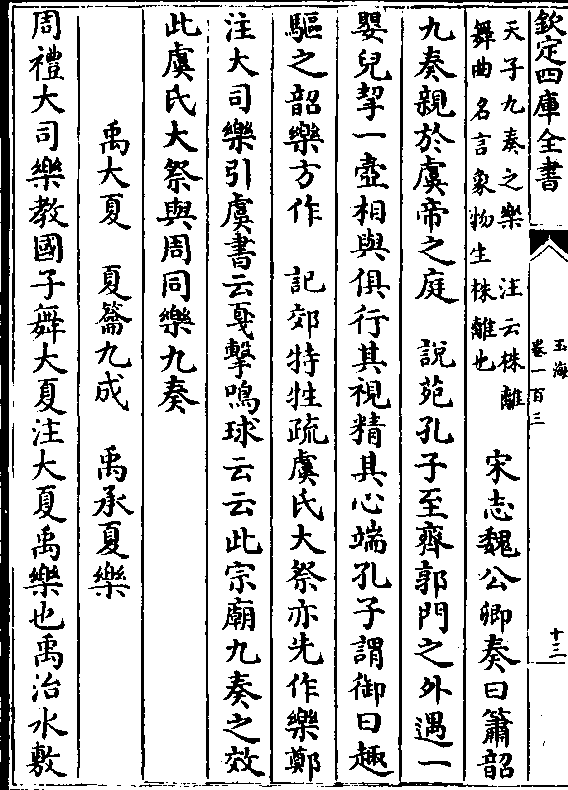 欽定四庫全書
玉海
卷一百三
十三
天子九奏之樂　注云株離
舞曲名言象物生株離也
宋志魏公卿奏曰簫韶
九奏親於虞帝之庭　說苑孔子至齊郭門之外遇一
嬰兒挈一壺相與俱行其視精其心端孔子謂御曰趣
驅之韶樂方作　記郊特牲疏虞氏大祭亦先作樂鄭
注大司樂引虞書云戛擊鳴球云云此宗廟九奏之效
此虞氏大祭與周同樂九奏
禹大夏　夏籥九成　禹承夏樂
周禮大司樂教國子舞大夏注大夏禹樂也禹治水敷